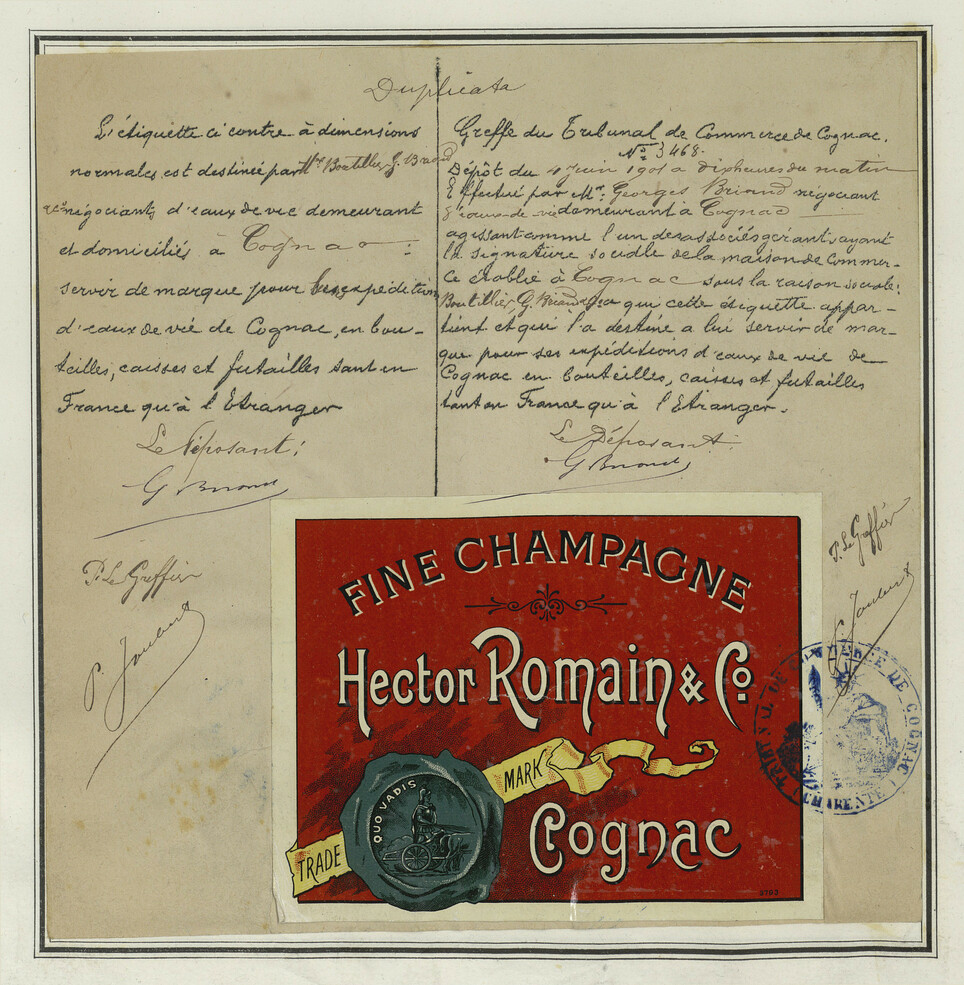 Duplicata
L'étiquette ci contre à dimensions
normales est destinée par Mrs Boutillier, G. Briand
& Cie négociants d'eaux de vie demeurant
et domiciliés à Cognac
servir de marque pour les expéditions
d'eaux de vie de Cognac, en bou-
teilles, caisses et futailles tant en
France qu'à l'Etranger
Le Déposant:
G Briand
P. Le Greffier
P. Joubert
Greffe du Tribunal de Commerce de Cognac.
No 3468.
Dépôt du 4 juin 1901 à dix heures du matin
Effectué par Mr. Georges Briand négociant
d'eaux-de-vie demeurant à Cognac
agissant comme l'un des associés gérants, ayant
la signature sociale de la maison de Commer-
ce établie à Cognac sous la raison sociale:
Boutillier, G. Briand & Cie a qui cette étiquette appar-
tient et qui l'a destiné a lui servir de mar-
que pour ses expéditions d'eaux de vie de
Cognac en bouteilles, caisses et futailles
tant en France qu'à l'Etranger.
Le Déposant:
G Briand
P. Le Greffier
P. Joubert
FINE CHAMPAGNE
Hector Romain & Co
QUO VADIS
TRADE MARK
Cognac
TRIBUNAL DE COMMERCE DE COGNAC
(CHARENTE)